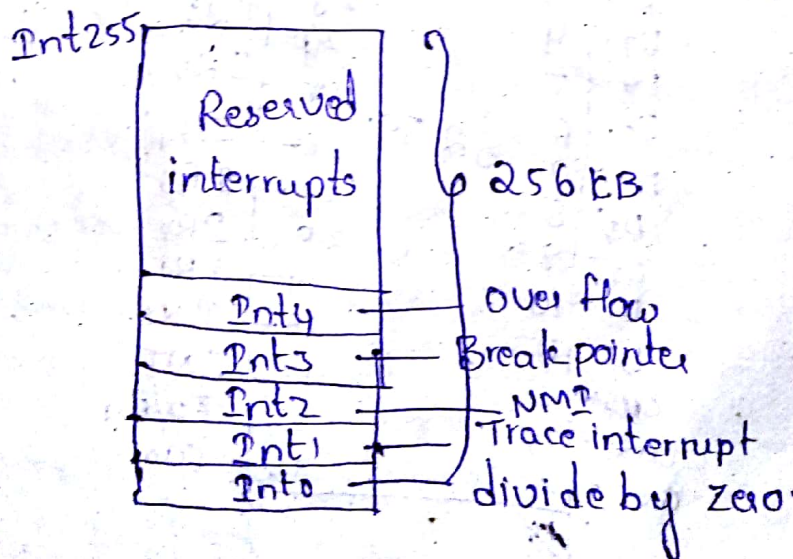 Int255
Reserved
interrupts
256 KB
Int4 over flow
Int3 Break pointer
Int2 NMI
Int1 Trace interrupt
Int0 divide by zero.